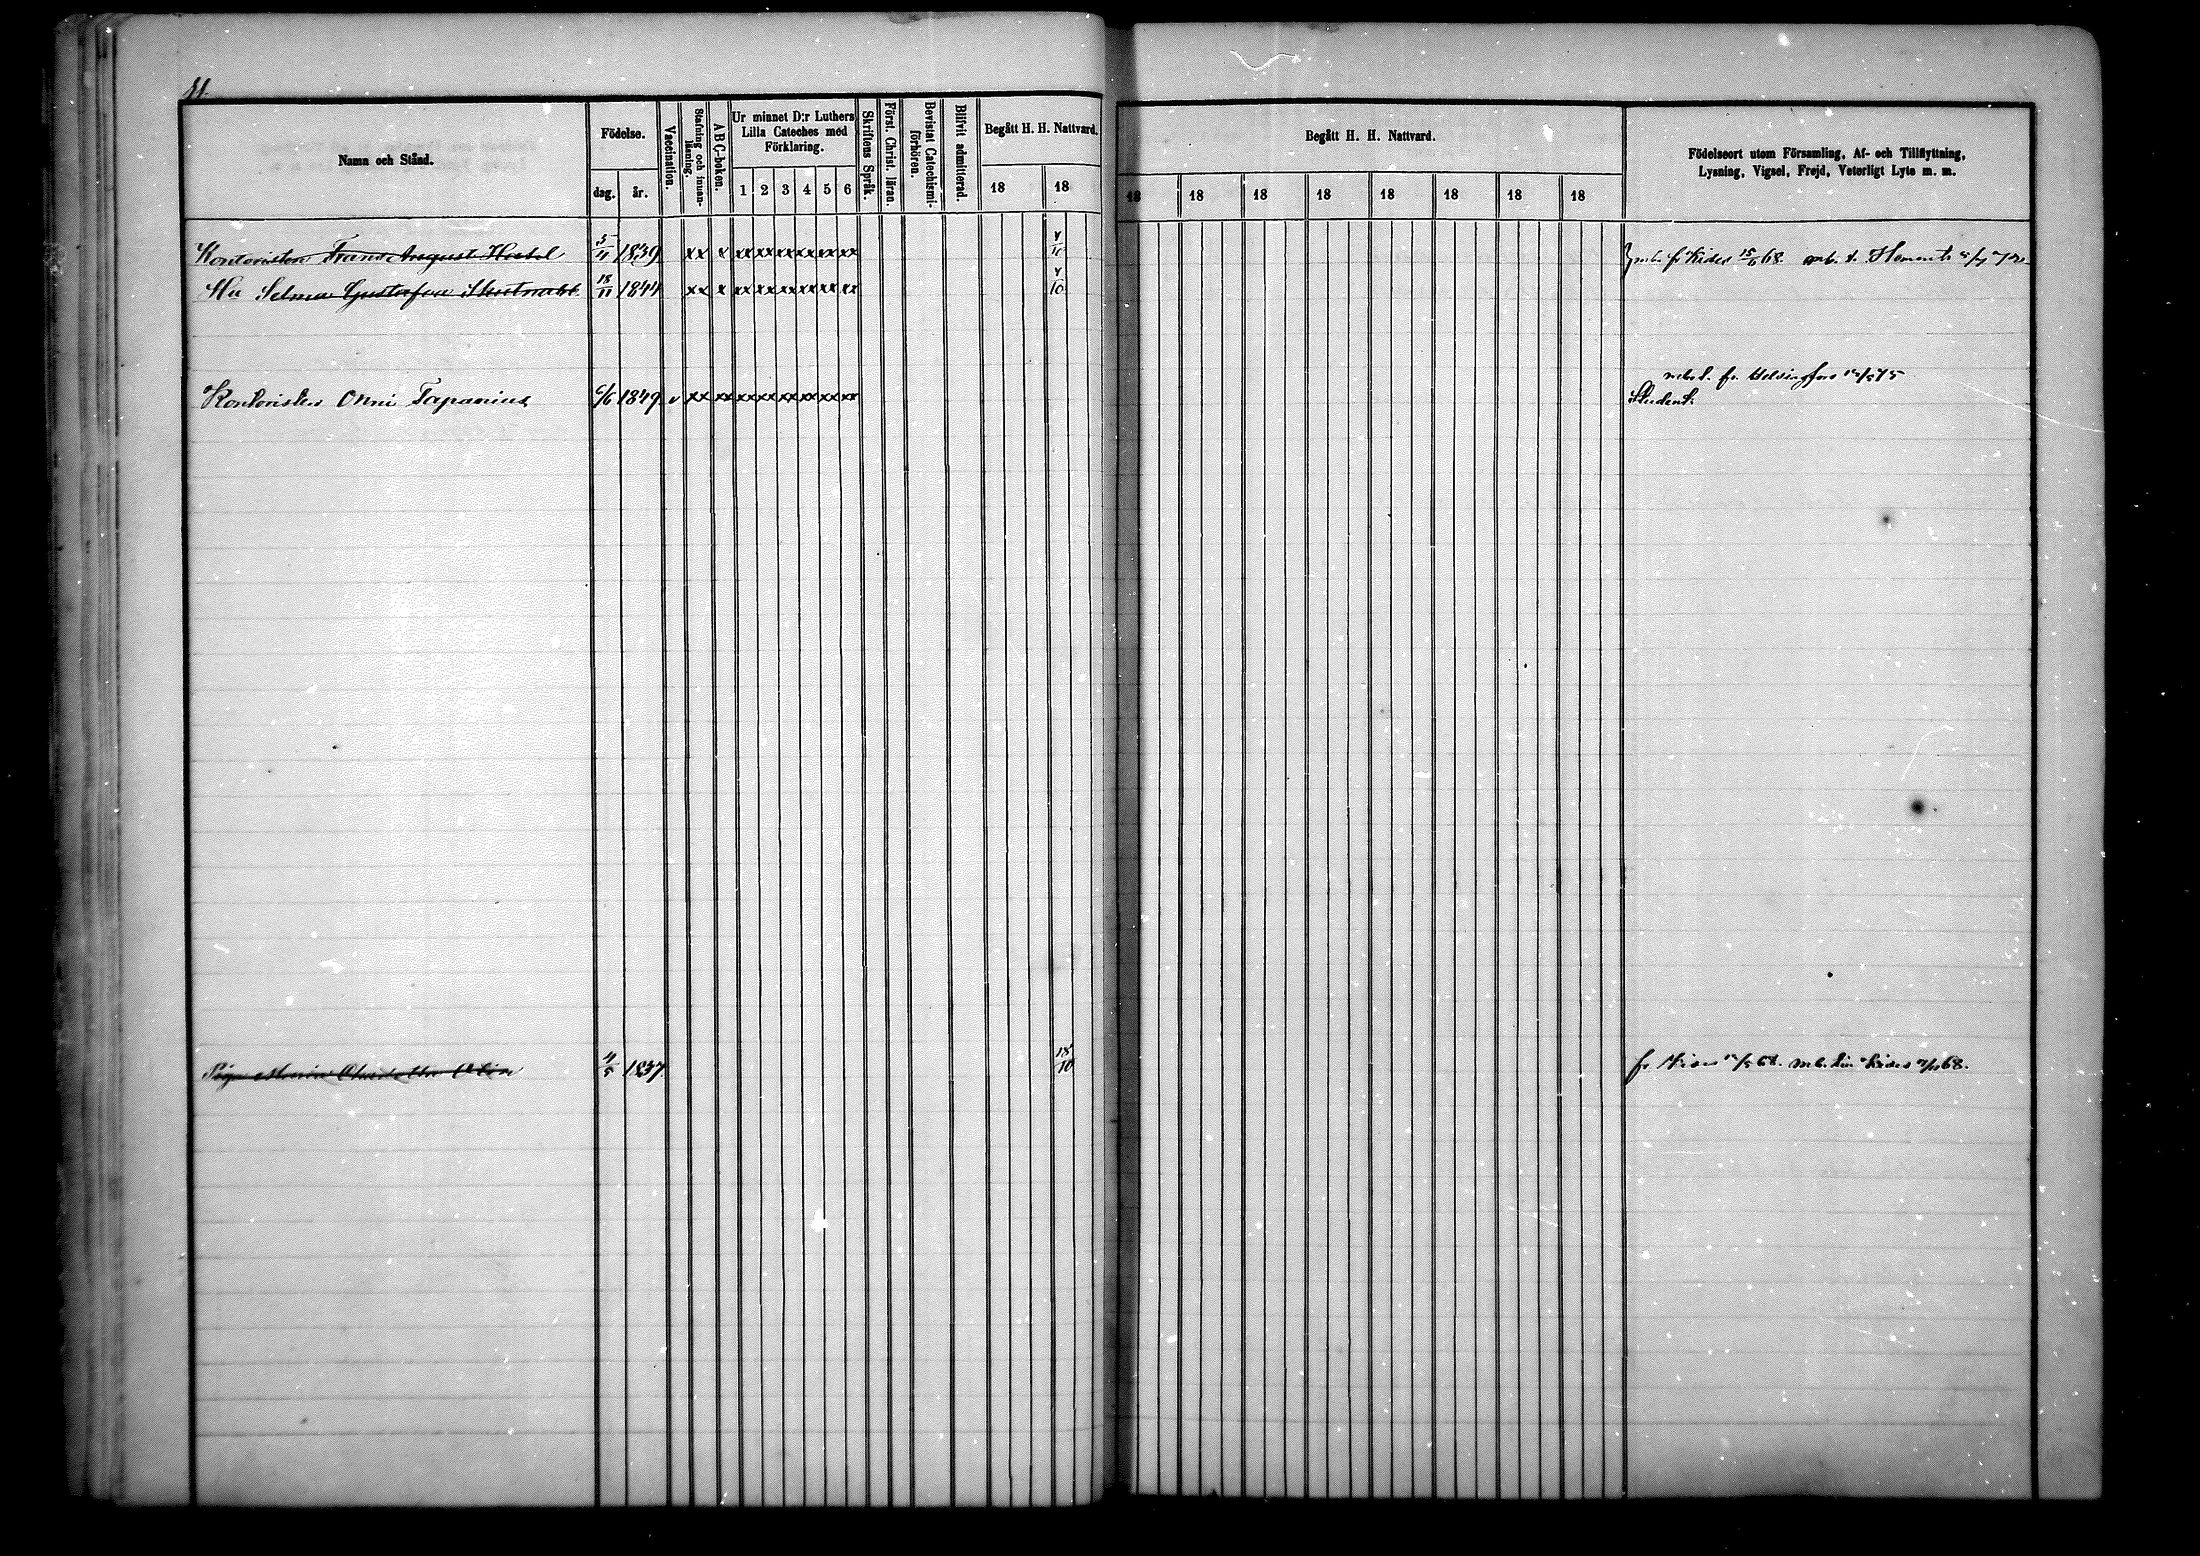 11.
Namn och Stånd.
Födelse.
dag. år.
Vaccination.
Stafning och innan-
läsning.
ABC-boken.
Ur minnet D:r Luthers
Lilla Cateches med
Förklaring.
1 2 3 4 5 6
Skriftens Språk.
Först. Christ. läran.
Bevistat Catechismi-
förhören.
Blifvit admitterad.
Begått H. H. Nattvard.
18 18
Begått H. H. Nattvard.
18 18 18 18 18 18 18 18
Födelseort utom Församling, Af- och Tillflyttning,
Lysning, Vigsel, Frejd, Veterligt Lyte m. m.
Kontoristen Frans August 5/4 1839 xx x xx xx xx xx xx xx v/10 mb. fr Kides 15/6 68. mb. t.
Hu Selma Gustafva 18/11 1844 xx x xx xx xx xx xx xx v/10
mbet. fr. Helsingfors
Kontoristen Onni Tapanius 6/6 1849 v xx xx xx xx xx xx xx xx Student.
Maria Charlotta 4/5 1837. 18/10 fr. 68. mb. Kides 68.